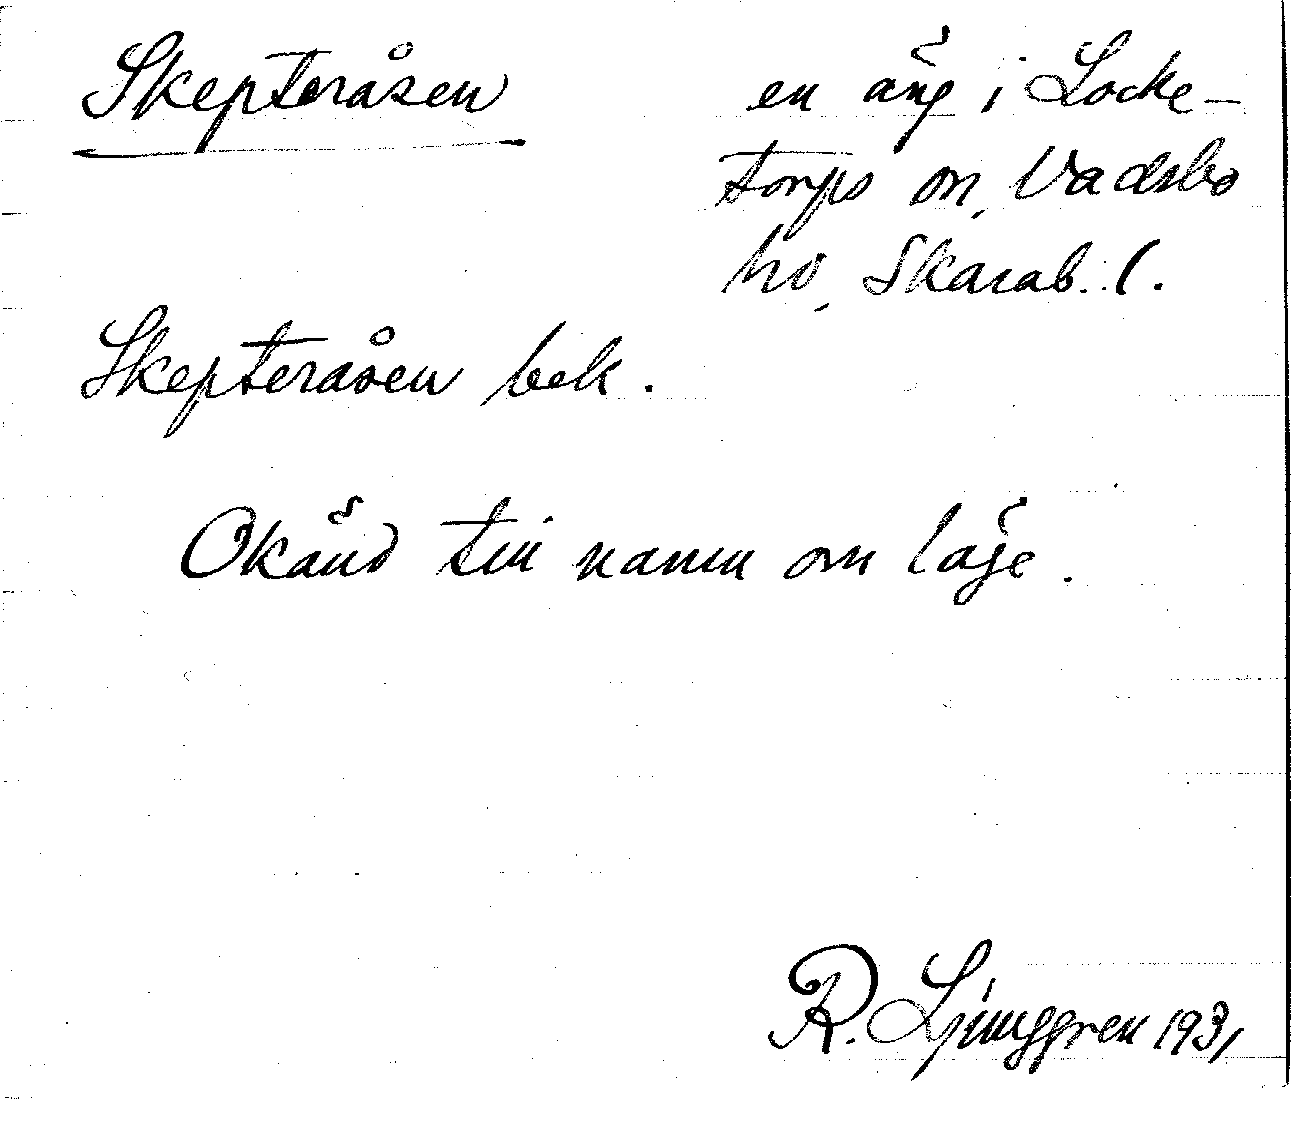 Skepteråsen
en äng i Locke-
torps sn, Vadsbo
hd, Skarab. l.
Skepteråsen bek.
Okänd till namn om läge.
R. Ljunggren 1931